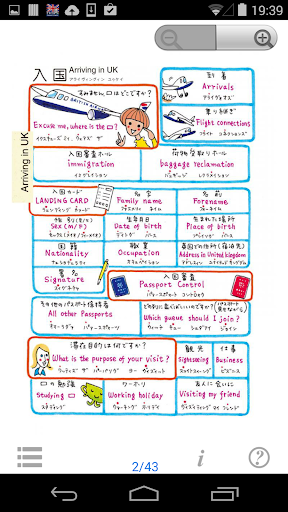 19:39
入国 Arriving in UK
アライヴィング イン ユゥケイ
Arriving in UK
すみません、□はどこですか?
Excuse me, where is the □?
到着
Arrivals
アライヴォーズ
乗りつぎ
Flight connections
フライト コネクションズ
入国審査ホール
immigration
イミグレイション
荷物受取りホール
baggage reclamation
入国カード
LANDING CARD
ランディング カード
名字
Family name
ファミリィ ネイム
名前
Forename
フォーネイム
性別(男/女)
Sex (M/F)
生年月日
Date of birth
デイト オヴ バース
生まれた場所
Place of birth
プレイス オヴ バース
国籍
Nationality
ナショナリティ
職業
Occupation
オキュペイション
Address in United kingdom
署名
Signature
スィグナチャ
入国審査
Passport Control
パスポート コントロウル
その他のパスポート保持者
All other Passports
Which queue should I join?
滞在目的は何ですか?
What is the purpose of your visit?
観光
sightseeing
サイトスィーイング
仕事
Business
ビズニス
□の勉強
Studying □
スタディング
ワーホリ
Working holiday
ワーキング ホリデイ
友人に会いに
Visiting my friend
ヴィズィティング マイ フレンド
2/43